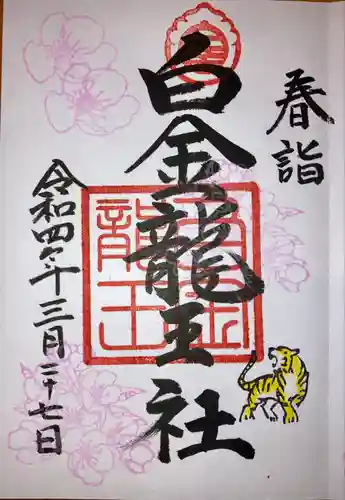 春詣
白金龍王社
令和四年三月二十七日
白金龍王